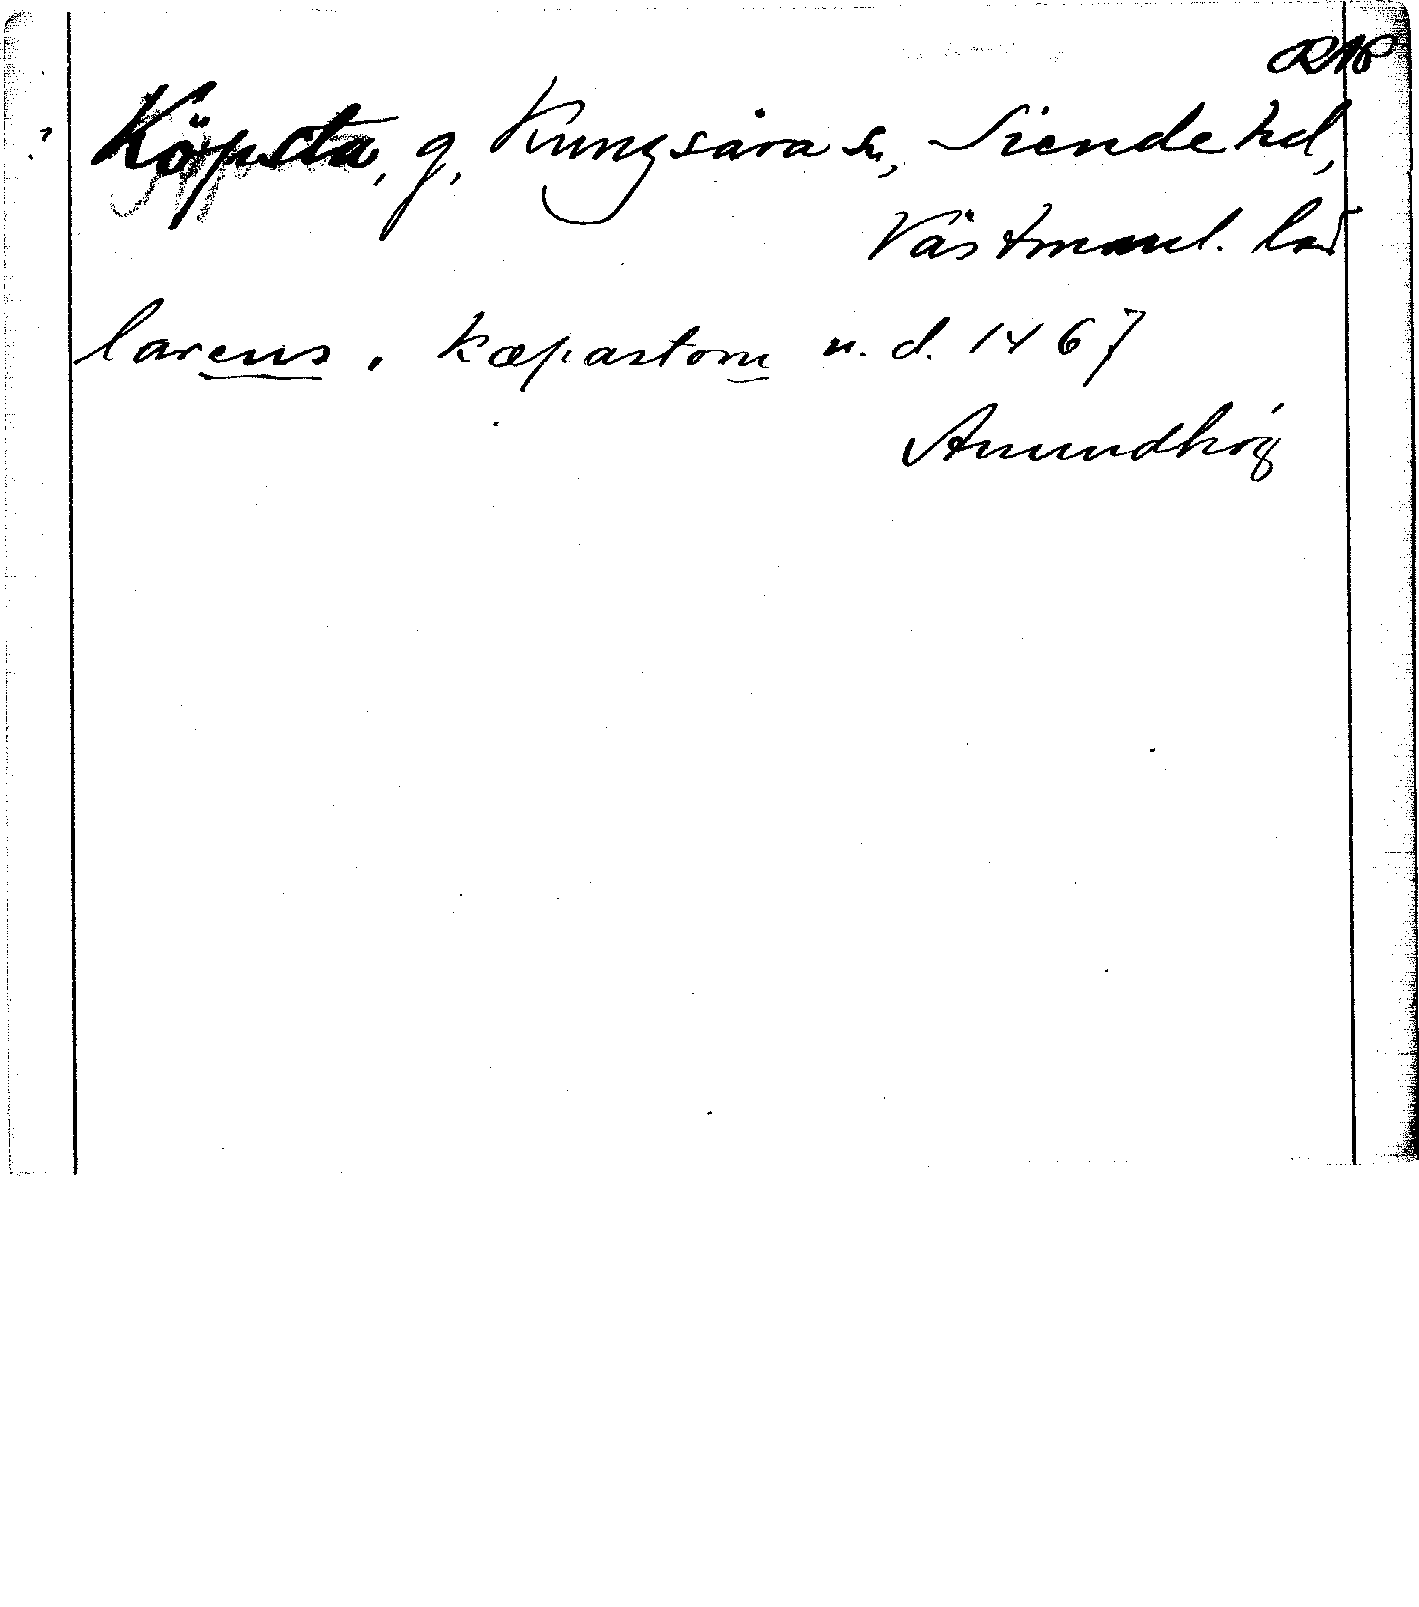 Köpsta, g, Kungsåra sn, Siende hd,
Västmanl. län
larens . kæpastom u. d. 1467
Amundhög